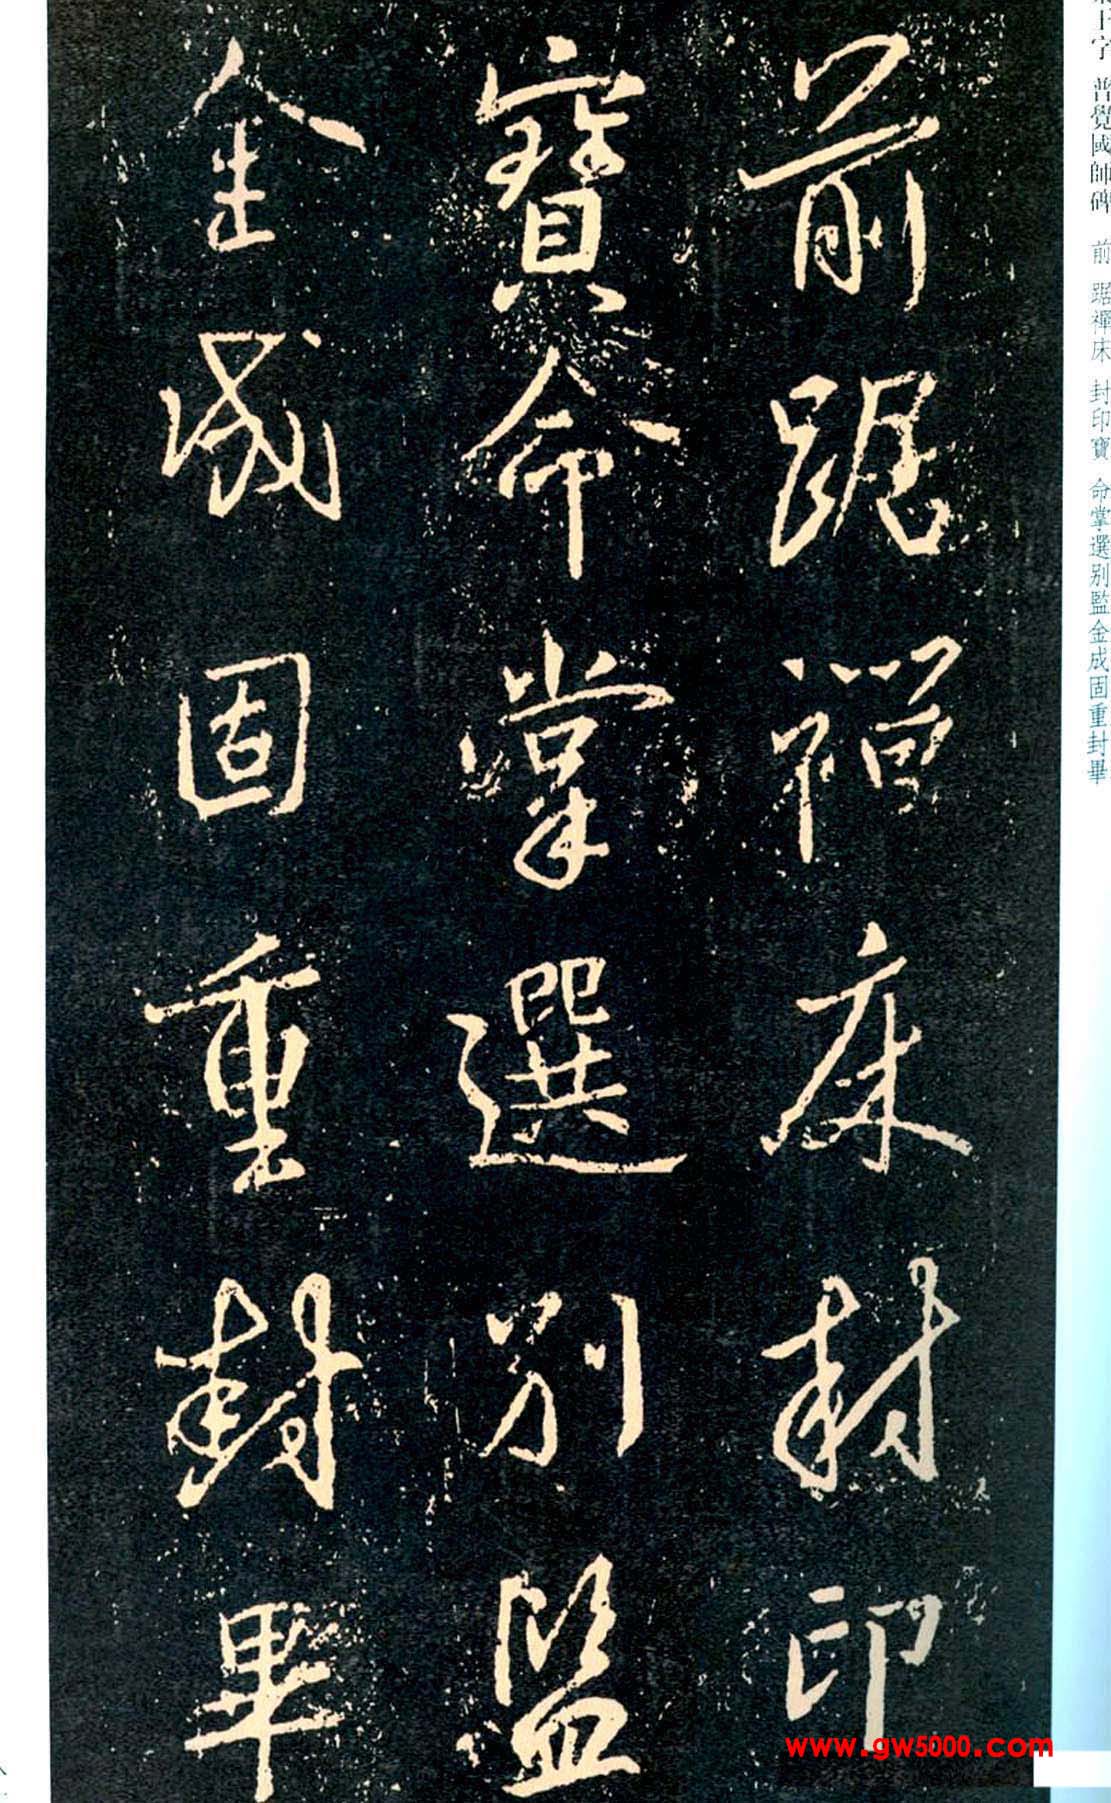 前踞禪床封印
寶命掌選別監
金成固重封畢
王字 普覺國師碑 前 踞禪床 封印寶 命掌選别監金成固重封畢
www.gw5000.com